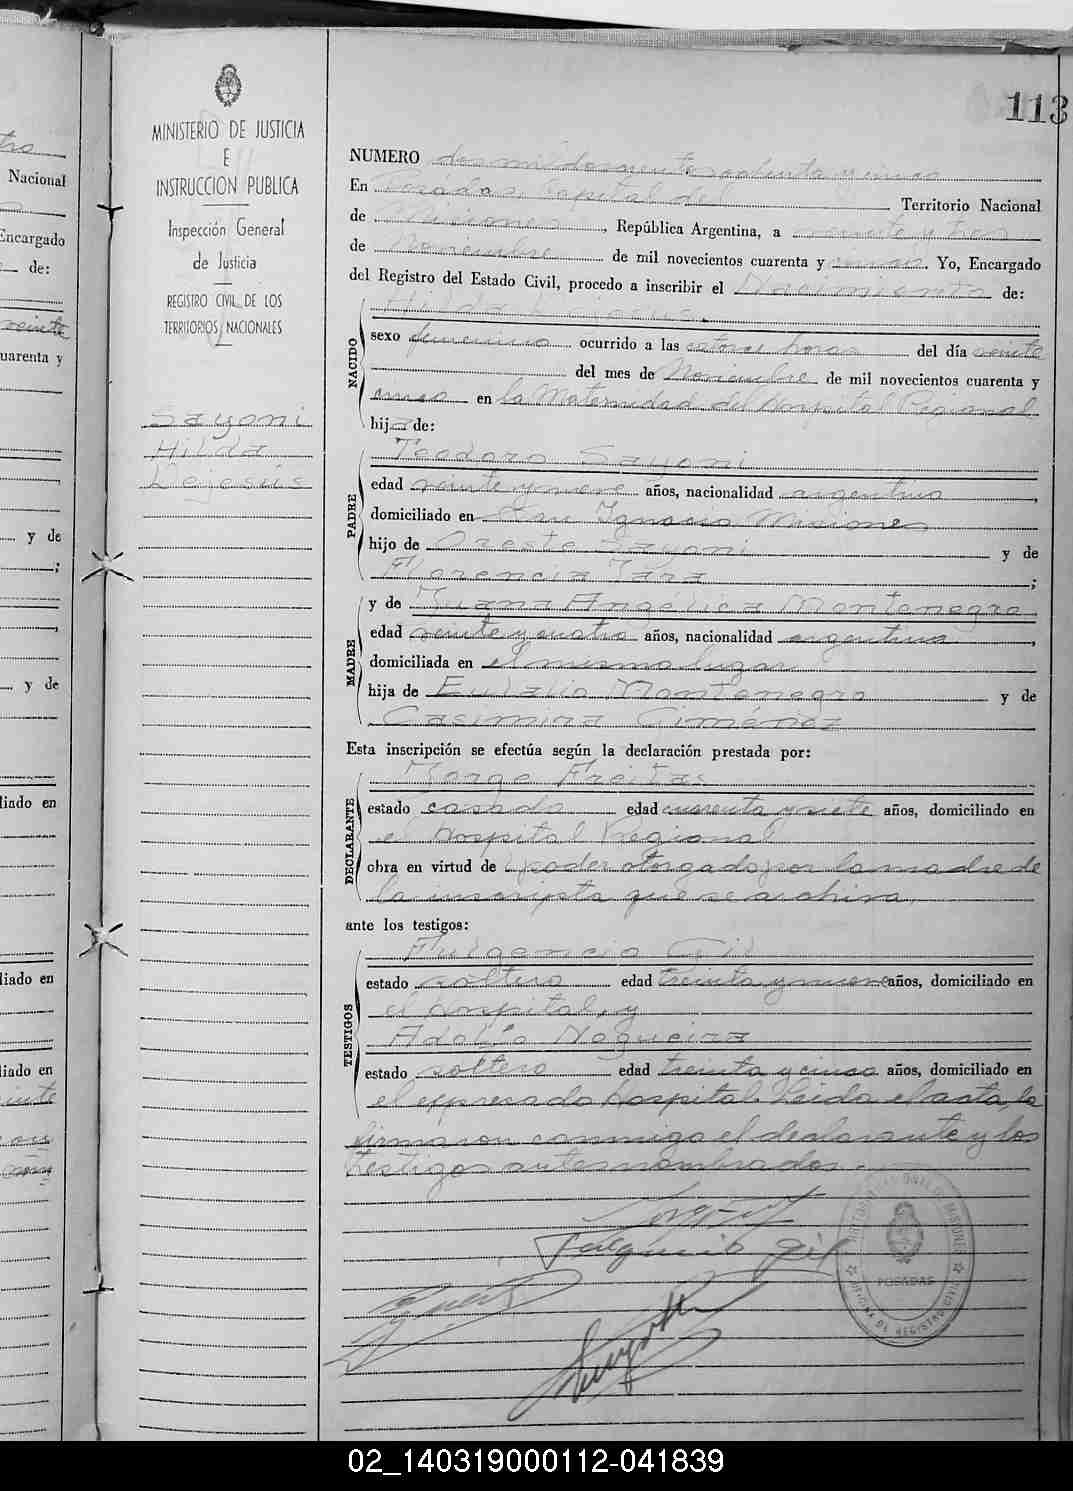 113
MINISTERIO DE JUSTICIA
E
INSTRUCCION PUBLICA
Inspección General
de Justicia
REGISTRO CIVIL DE LOS
TERRITORIOS NACIONALES
Sayoni
Hilda
Dejesús
NUMERO dos mil doscientos ochenta y cinco
En Posadas, Capital del Territorio Nacional
de Misiones, República Argentina, a veinte y tres
de Noviembre de mil novecientos cuarenta y cinco. Yo, Encargado
del Registro del Estado Civil, procedo a inscribir el Nacimiento de:
NACIDO
Hilda Dejesus.
sexo femenino ocurrido a las catorce horas del día veinte
del mes de Noviembre de mil novecientos cuarenta y
cinco en la Maternidad del Hospital Regional
hija de:
PADRE
Teodoro Sayoni
edad veinte y nueve años, nacionalidad argentino,
domiciliado en San Ignacio Misiones
hijo de Oreste Sayoni y de
Florencia Jara;
MADRE
y de Juana Angélica Montenegro
edad veinte y cuatro años, nacionalidad argentina,
domiciliada en el mismo lugar
hija de Eulalio Montenegro y de
Casimira Giménez
Esta inscripción se efectúa según la declaración prestada por:
DECLARANTE
Jorge Freitas
estado casado edad cuarenta y siete años, domiciliado en
el Hospital Regional
obra en virtud de poder otorgado por la madre de
la inscripta que se archiva,
ante los testigos:
TESTIGOS
Fulgencio Gil
estado soltero edad treinta y nueve años, domiciliado en
el Hospital, y
Adolfo Nogueira
estado soltero edad treinta y cinco años, domiciliado en
el expresado Hospital. Leida el acta, la
firmaron conmigo el declarante y los
testigos antes nombrados.
Fulgencio Gil
POSADAS
OFICINA DE REGISTRO CIVIL
tro
Nacional
Encargado
de:
veinte
uarenta y
y de
;
,
y de
liado en
liado en
liado en
02_140319000112-041839